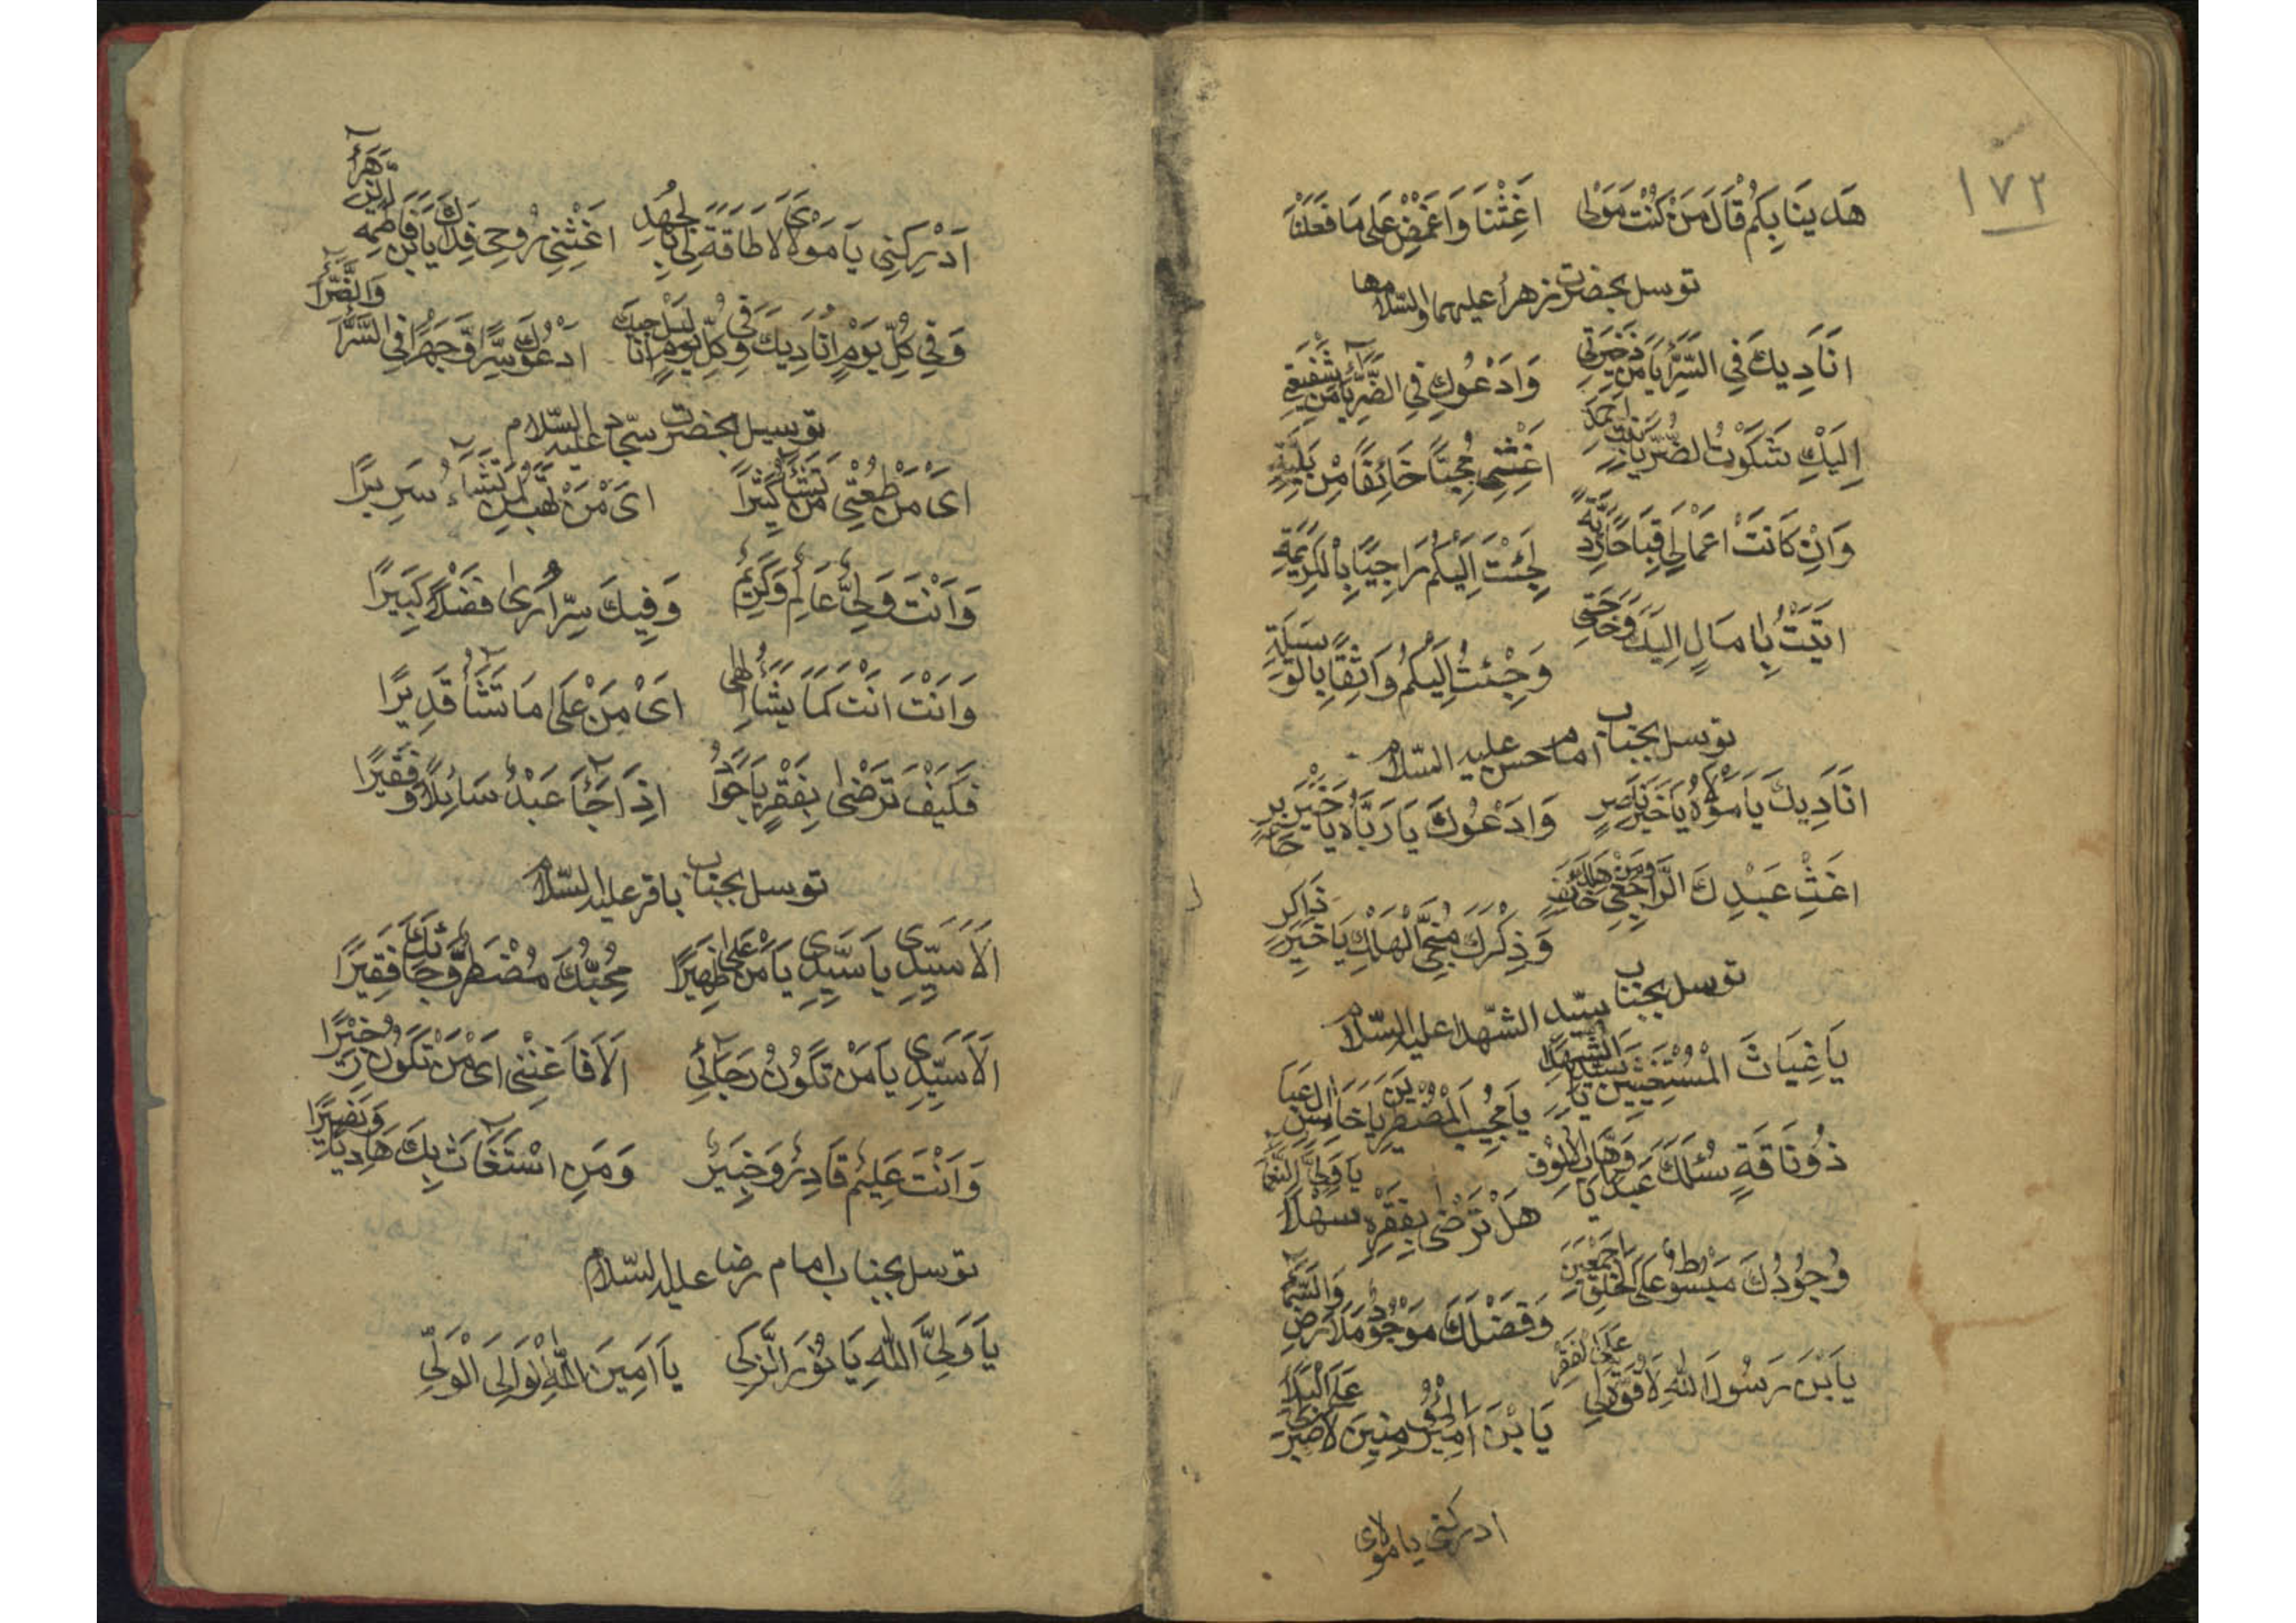 ١٧٢
هَدَينَا بِكُم قَالَ مَن كُنت مَولى اغِثْنَا وَاغمِضْ عَلى مَا فَعَلْنَا
توسل بحضرت زهرأ عليهما والسّلامها
اُنَادِيكَ فِي السَّرَّأ يَا مَن ذَخيرَتي وَادْعُوكِ فِي الضَّرَّأ يَا مَن شَفيعَتِي
اِلَيْكِ شَكَوْتُ الضُّرَّ يَابِنتَ احمَدَ اغِثْنِي مُحِبّاً خَائِفًا مِنْ بَلِيَّةٍ
وَاِنْ كَانَتْ اعْمَالِي قِبَاحًا رَدِيَّةً لَجِئتَ اِلَيْكُم رَاجِيًا بِالْكَرِيمَةِ
اتَيْتُ بِامَالٍ اِلَيكَ وَحَاجَتى وَجِئتُ اِلَيكُم وَاثِقًا بِالوَسيلَةِ
توسل بجناب امام حسن عليه السّلام
اُنَادِيكَ يَا مَوْلَاهُ يَا خَيرَ نَاصِرٍ وَادْعُوكَ يَا رَبَّاه يَا خَيرَ
اغِثْ عَبْدِكَ الرَّاجِي وَذِكْرَكَ مُنجِى الهَالِكِ يَا خَيرَ ذَاكِرٍ
توسل بجناب سيّد الشّهدا عليه السّلام
يَا غِيَاثَ الْمُسْتَغيثِينَ يَا سَيّدَ الشُّهَدَا يَا مُجِيبَ الْمُضْطَرّينَ يَا خَامِسَ ال عَبَا
ذُو فَاقَةٍ سَئَلَكَ عَبد يَا وَهَّابَ الاُلُوف هَلْ تَرْضى بِفَقْرِهِ سَهْلاً يَا وَلِيَّ النَّعمَا
وُجُودُكَ مَبْسُوطٌ عَلَى الخَلقِ اجمَعينَ وَفَضْلُكَ مَوْجُودٌ مَلَا ارض وَالسَّمآ
يَا بْنَ رَسُولَ اللهِ لَا قُوَّةَ لِي عَلَى الفَقرِ يَا بْنَ امِيرَ المُؤمِنينَ لَا صَبرَ لي عَلَى البَلَا
ادركنى يا مولاى
اَدْرِكْنِي يَا مَوْلَاىَ لَا طَاقَةً لِي بِالجُهْدِ اغِثْنِي رُوحِي فِدَاكَ يَابن فَاطِمَةِ الزَّهرَا
وَفِي كُلِّ يَوْمٍ اُنَادِيكَ وَفِى كُلّ يَومٍ انَا ادْعُوكَ سِرًّا وَّجَهْرًا فِى السَّرَّا وَالضَّرَّا
توسل بحضرت سجّاد عليه السّلام
اىْ مَنْ مَنْ تَشَآءُ كَثيرًا اىْ مَنْ تَهَبُ لِمَنْ تَشَآءُ سَرِيرًا
وَاَنْتَ وَلِيٌّ عَالِم وَكَرِيمٌ وَفِيكَ سِرًّا اَرى فَضْلاً كَبِيرًا
وَاَنْتَ اَنْتَ كَمَا يَشَأُ اِلهِى اىْ مَنْ عَلَى مَا تَشَأ قَدِيرًا
فَكَيْفَ تَرْضى بِفَقْرٍ يَا جَوَادُ اِذَا جَآءَ عَبْدٌ سَائِلاً وَفَقيرًا
توسل بجناب باقر عليه السّلام
اَلَا سَيِّدِي يَا سَيِّدِي يَا مَنْ عَلى ظَهِيرًا مُحِبُّكَ مُضْطَرٌّ وَّجَائَكَ فَقِيرًا
اَلَا سَيِّدِي يَا مَنْ تَكُونُ رَجَآئِي اَلَا فَاغِثْنِى اىْ مَنْ تَكُونُ خَبِيرًا
وَاَنْتَ عَلِيمٌ قَادِرٌ وَخَبِيرٌ وَمَنِ اسْتَغَاثَ بِكَ هَادِيًا وَنَصِيرًا
توسل بجناب امام رضا عليه السّلام
يَا وَلِيَّ اللهِ يَا نُورَ الزَّكِى يَا اَمِينَ اللهِ لِوَالِىَ الْوَلِيِّ